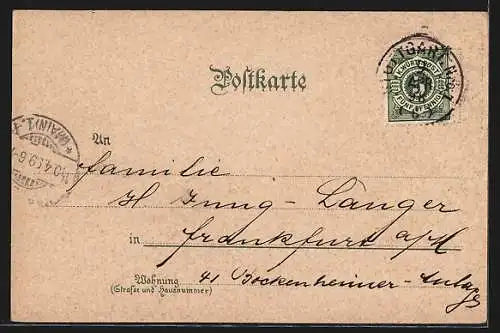 Postkarte
STUTTGART
K. WÜRTT. POST
5
FÜNF PFENNIG
An
Familie
H Jung-Langer
in Frankfurt a/M
Wohnung
(Straße und Hausnummer)
41 Bockenheimer-Anlage
(MAIN) 1.